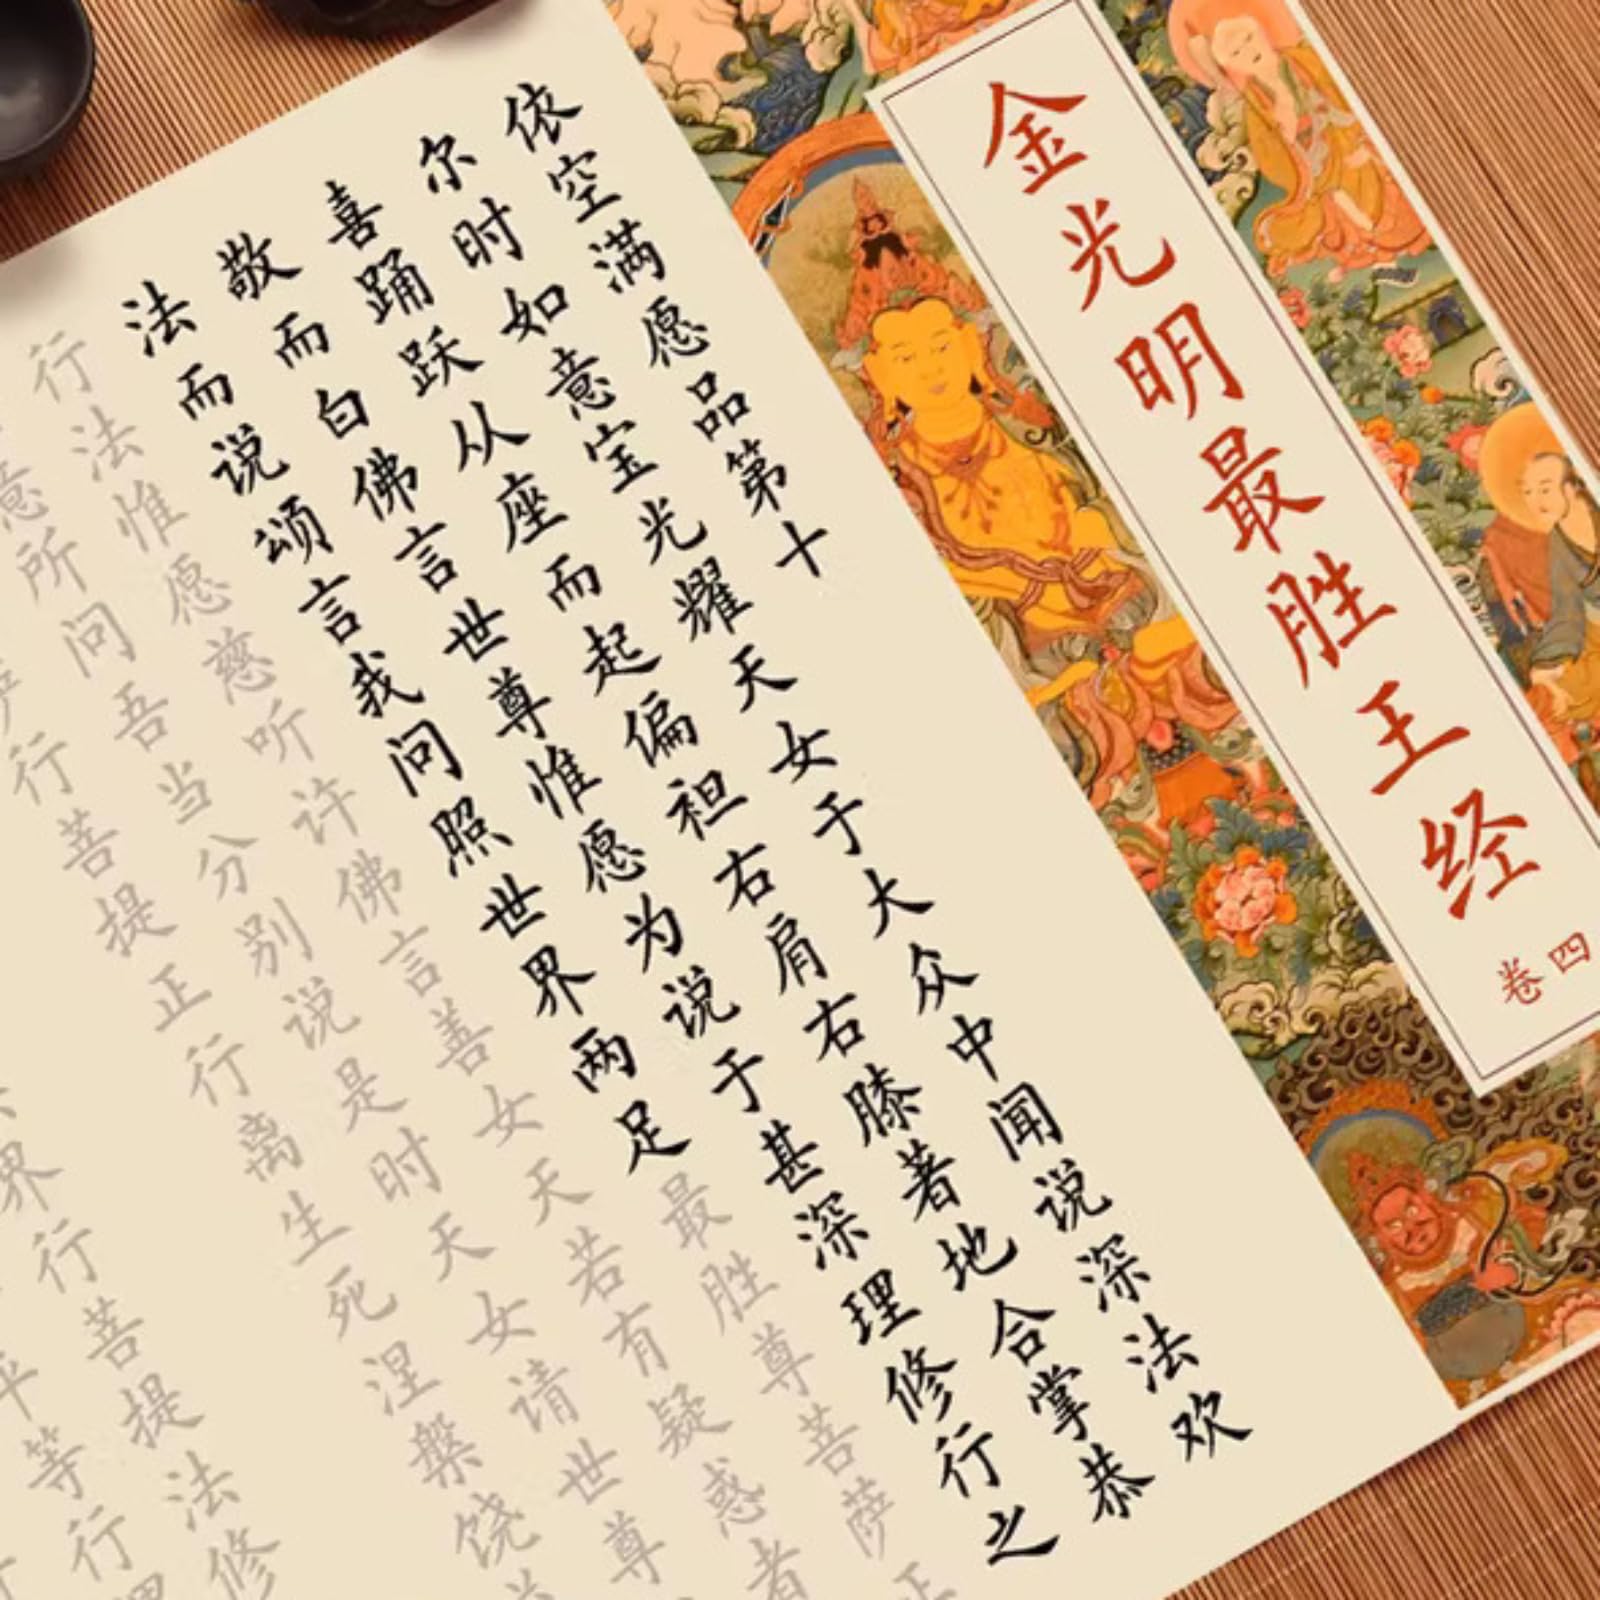 金光明最胜王经
卷四
依空满愿品第十
尔时如意宝光耀天女于大众中闻说深法欢
喜踊跃从座而起偏袒右肩右膝著地合掌恭
敬而白佛言世尊惟愿为说于甚深理修行之
法而说颂言我问照世界两足最胜尊菩萨正
行法惟愿慈听许佛言善女天若有疑惑者
意所问吾当分别说是时天女请世尊
行菩提正行离生死涅槃饶
界行菩提法修
平等行